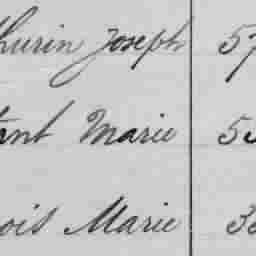 hurin Joseph 57
tant Marie 53
ois Marie 38